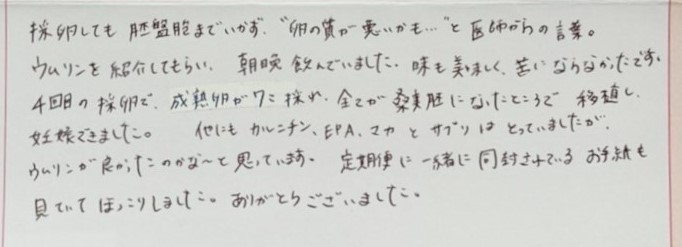 採卵しても 胚盤胞までいかず、"卵の質が悪いかも…"と 医師からの言葉。
ウムリンを 紹介してもらい、 朝晩 飲んでいました。味も美味しく、苦にならなかったです。
4回目の 採卵で、成熟卵が7コ採れ、全てが 桑実胚になったところで 移植し、
妊娠できました。 他にも カルニチン、EPA、マカ と サプリは とっていましたが、
ウムリンが良かったのかな〜と 思っています。 定期便に 一緒に 同封されている お手紙も
見ていて ほっこりしました。ありがとうございました。